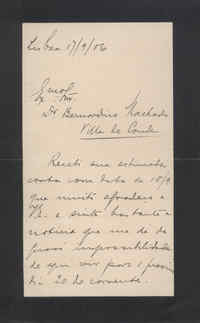 Lisboa 17/9/06
Exmo
Sr.
Dr Bernardino Machado
Villa do Conde
Recebi sua estimada
carta com data de 15/9
que muito agradeço a
V. e sinto bastante a
noticia que me dá de
impossibilidade
de aqui vir para o proximo
dia 20 do corrente.